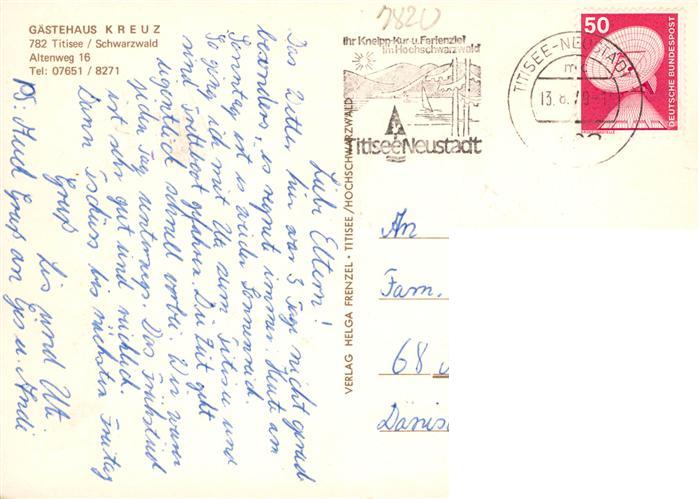 GÄSTEHAUS KREUZ
782 Titisee / Schwarzwald
Altenweg 16
Tel: 07651 / 8271
Liebe Eltern!
Das Wetter hier war 3 Tage nicht grad
besonders, es regnet immer. Heute am
Sonntag ist es wieder Sonnensch.
So ging ich mit Ute zum Titisee und
sind Tretboot gefahren. Die Zeit geht
eigentlich schnell vorbei. Wir waren
jeden Tag unterwegs. Das Frühstück
ist sehr gut und reichlich.
Dann tschüss bis nächsten Freitag
Gruß Lis und Ute
PS. Auch Gruß an Gis u. Andi
VERLAG HELGA FRENZEL · TITISEE/HOCHSCHWARZWALD
7820
Ihr Kneipp-Kur-u. Ferienziel
im Hochschwarzwald
Titisee Neustadt
TITISEE-NEUSTADT
13.8.79
50
DEUTSCHE BUNDESPOST
An
Fam.
68
Dänis